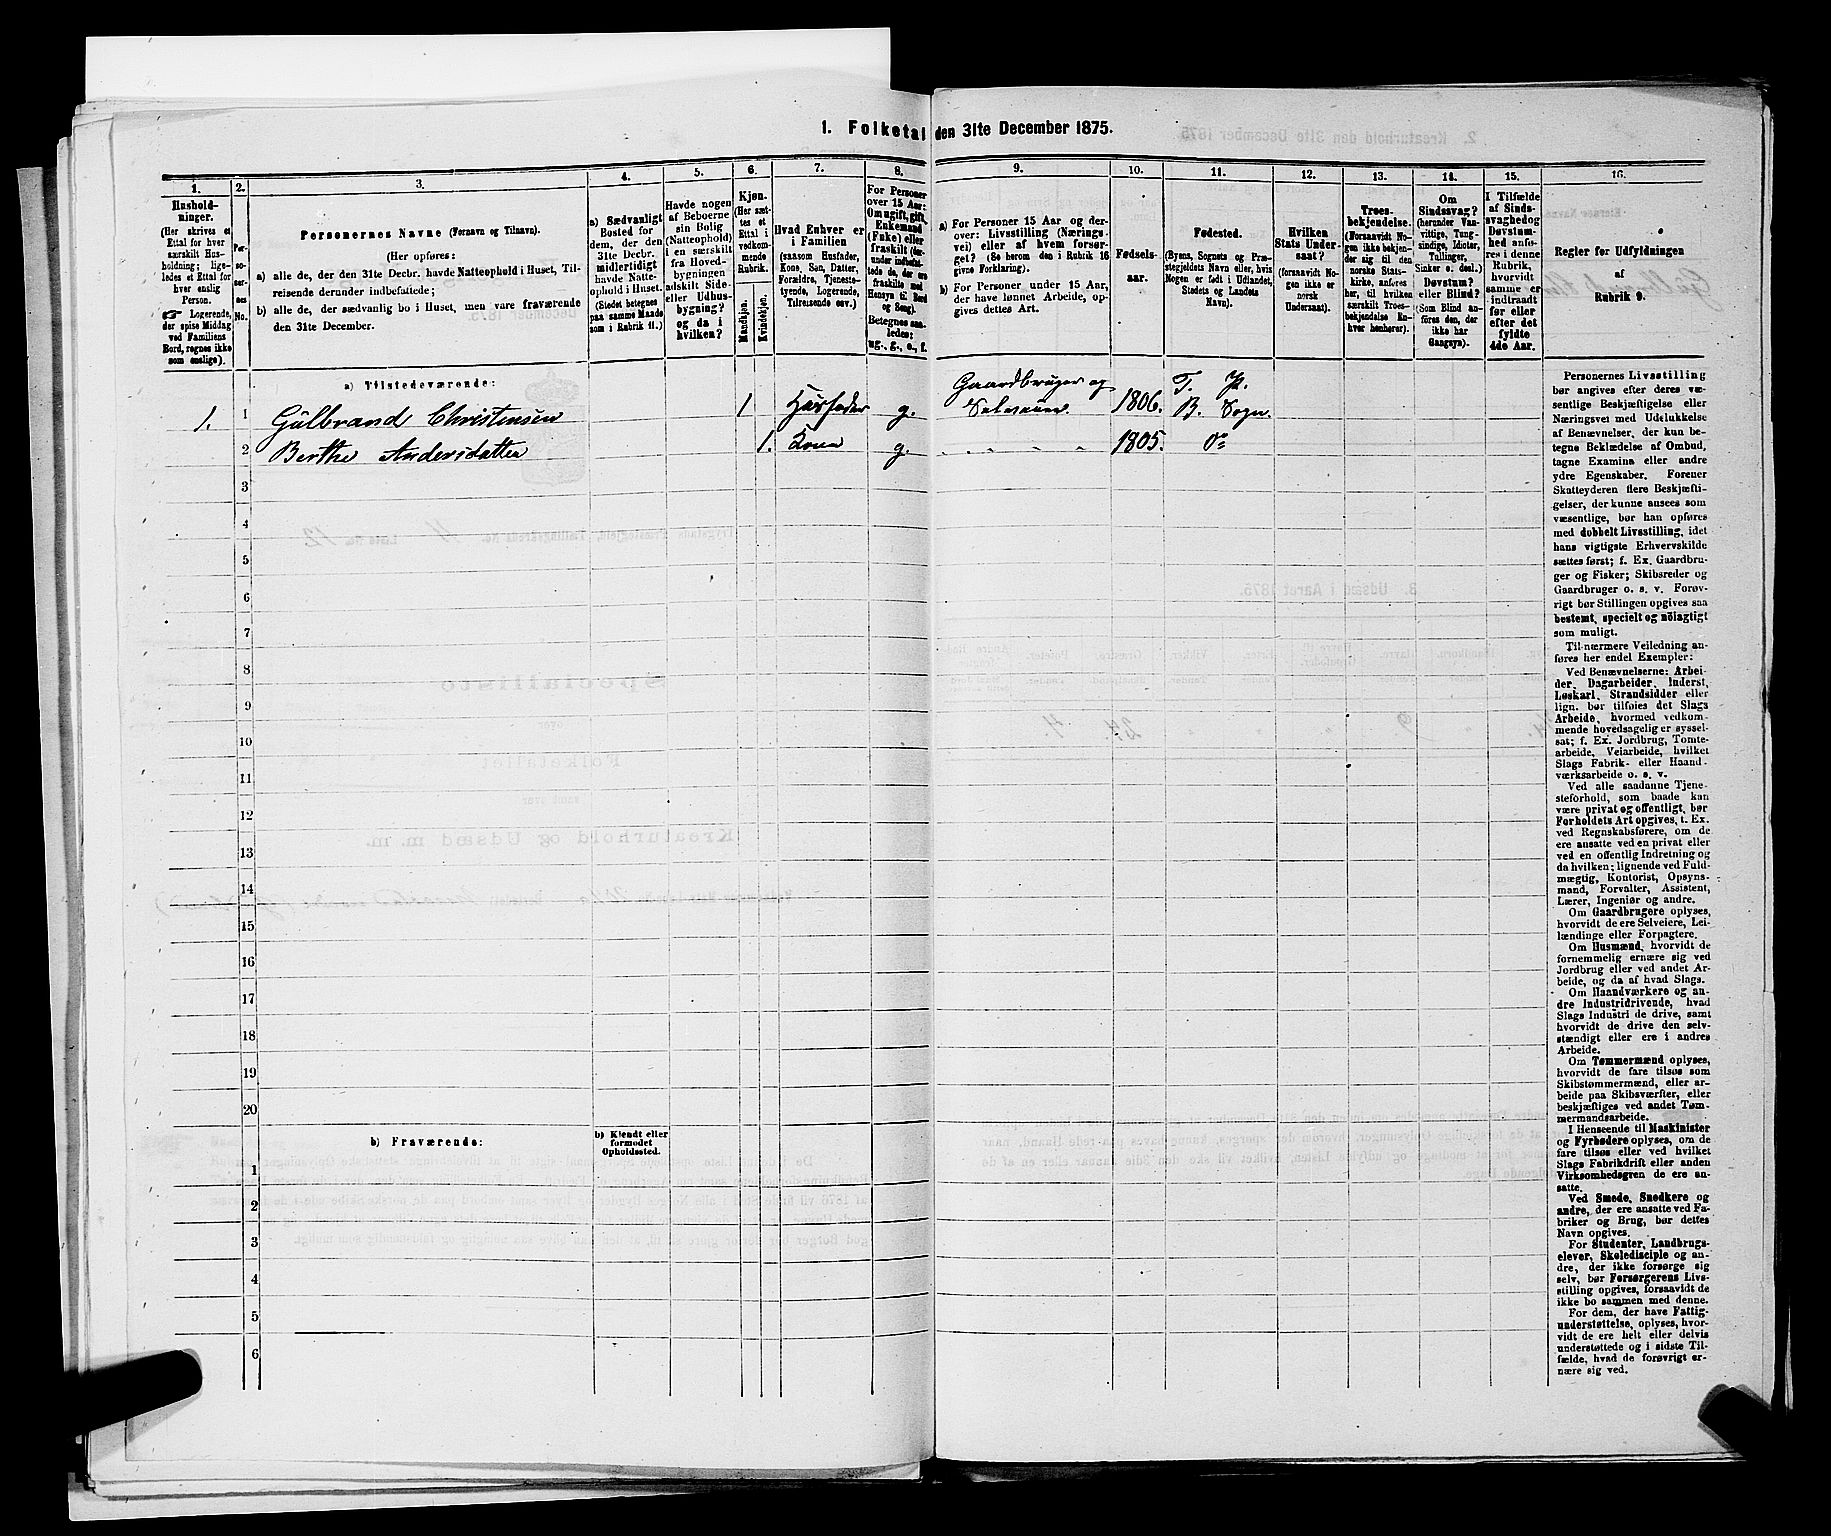 1. Folketal den 31te December 1875.
1.
2.
3.
4.
5.
6.
7.
8.
9.
10.
11.
12.
13.
14.
15.
16.
Hushold-
ninger.
(Her skrives et
Ettal for hver
særskilt Hus-
holdning; lige-
ledes et Ettal
for hver enslig
Person.
Logerende,
der spise Middag
ved Familiens
Bord, regnes ikke
som enslige).
Per-
so-
ner-
nes
No.
Personernes Navne (Fornavn og Tilnavn).
(Her opføres:
a) alle de, der den 31te Decbr. havde Natteophold i Huset, Til-
reisende derunder indbefattede;
b) alle de, der sædvanlig bo i Huset, men vare fraværende
den 31te December.
a) Sædvanligt
Bosted for
dem, der den
31te Decbr.
midlertidigt
havde Natte-
ophold i Huset.
(Stedet betegnes
paa samme Maade
som i Rubrik 11.)
Havde nogen
af Beboerne
sin Bolig
(Natteophold)
i en særskilt
fra Hoved-
bygningen
adskilt Side-
eller Udhus-
bygning?
og da i
hvilken?
Kjøn.
(Her sæt-
tes et
Ettal i
vedkom-
mende
Rubrik.
Mandkjøn.
Kvindekjøn.
Hvad Enhver er
i Familien
(saasom Husfader,
Kone, Søn, Datter,
Forældre, Tjeneste-
tyende, Logerende,
Tilreisende osv.)
For Personer
over 15 Aar:
Om ugift, gift,
Enkemand
(Enke) eller
fraskilt (der-
under indbefat-
tede de, der ere
fraskilte med
Hensyn til Bord
og Seng)
Betegnes saa-
ledes:
ug., g., e., f.
a) For Personer 15 Aar og der-
over: Livsstilling (Nærings-
vei) eller af hvem forsør-
get? (Se herom den i Rubrik 16
givne Forklaring).
b) For Personer under 15 Aar,
der have lønnet Arbeide, op-
gives dettes Art.
Fødsels-
aar.
Fødested.
(Byens, Sognets og Præ-
stegjeldets Navn eller, hvis
Nogen er født i Udlandet,
Stedets og Landets
Navn).
Hvilken
Stats Under-
saat?
(forsaavidt No-
gen ikke er
norsk
Undersaat).
Troes-
bekjendelse.
(Forsaavidt No-
gen ikke bekjen-
der sig til den
norske Stats-
kirke, anføres
her, til hvilken
særskilt Troes-
bekjendelse En-
hver henhører).
Om
Sindssvag?
(herunder Van-
vittige, Tung-
sindige, Idioter,
Tullinger,
Sinker o. desl.)
Døvstum?
eller Blind?
(Som Blind an-
føres den, der
ikke har
Gangsyn).
I Tilfælde
af Sinds-
svaghed og
Døvstum-
hed anfø-
res i denne
Rubrik,
hvorvidt
samme er
indtraadt
før eller
efter det
fyldte
4de Aar.
Regler for Udfyldningen
af
Rubrik 9.
a) Tilstedeværende:
Gaardbruger og T. P.
1. 1 Gulbrand Christensen 1 Husfader g. Selveier 1806. B. Sogn.
2 Berthe Andersdatter 1. Kone g. 1805. Do
3
4
5
6
7
8
9
10
11
12
13
14
15
16
17
18
19
20
b) Fraværende:
b) Kjendt eller
formodet
Opholdssted.
1
2
3
4
5
6
Personernes Livsstilling
bør angives efter deres væ-
sentlige Beskjæftigelse eller
Næringsvei med Udelukkelse
af Benævnelser, der kun be-
tegne Beklædelse af Ombud,
tagne Examina eller andre
ydre Egenskaber. Forener
Skatteyderen flere Beskjæfti-
gelser, der kunne ansees som
væsentlige, bør han opføres
med dobbelt Livsstilling, idet
hans vigtigste Erhvervskilde
sættes først; f. Ex. Gaardbru-
ger og Fisker; Skibsreder og
Gaardbruger o. s. v. Forøv-
rigt bør Stillingen opgives saa
bestemt, specielt og nøiagtigt
som muligt.
Til nærmere Veiledning an-
føres her endel Exempler:
Ved Benævnelserne: Arbei-
der, Dagarbeider, Inderst,
Løskarl, Strandsidder eller
lign. bør tilføies det Slags
Arbeide, hvormed vedkom-
mende hovedsagelig er syssel-
sat; f. Ex. Jordbrug, Tomte-
arbeide, Veiarbeide, hvilket
Slags Fabrik- eller Haand-
værksarbeide o. s. v.
Ved alle saadanne Tjene-
steforhold, som baade kan
være privat og offentligt, bør
Forholdets Art opgives, t. Ex.
ved Regnskabsførere, om de
ere ansatte ved en privat eller
ved en offentlig Indretning og
da hvilken; lignende ved Fuld-
mægtig, Kontorist, Opsyns-
mand, Forvalter, Assistent,
Lærer, Ingeniør og andre.
Om Gaardbrugere oplyses,
hvorvidt de ere Selveiere, Lei-
lændinge eller Forpagtere.
Om Husmænd, hvorvidt de
fornemmelig ernære sig ved
Jordbrug eller ved andet Ar-
beide, og da af hvad Slags.
Om Haandværkere og an-
dre Industridrivende, hvad
Slags Industri de drive, samt
hvorvidt de drive den selv-
stændigt eller ere i andres
Arbeide.
Om Tømmermænd oplyses,
hvorvidt de fare tilsøs som
Skibstømmermænd, eller ar-
beide paa Skibsværfter, eller
beskjæftiges ved andet Tøm-
mermandsarbeide.
I Henseende til Maskinister
og Fyrbødere oplyses, om de
fare tilsøs eller ved hvilket
Slags Fabrikdrift eller anden
Virksomhedsgren de ere an-
satte.
Ved Smede, Snedkere og
andre, der ere ansatte ved Fa-
briker og Brug, bør dettes
Navn opgives.
For Studenter, Landbrugs-
elever, Skoledisciple og an-
dre, der ikke forsørge sig
selv, bør Forsørgerens Livs-
stilling opgives, forsaavidt de
ikke bo sammen med denne.
For dem, der have Fattig-
understøttelse, oplyses, hvor-
vidt de ere helt eller delvis
understøttede og i sidste Til-
fælde, hvad de forøvrigt er-
nære sig ved.